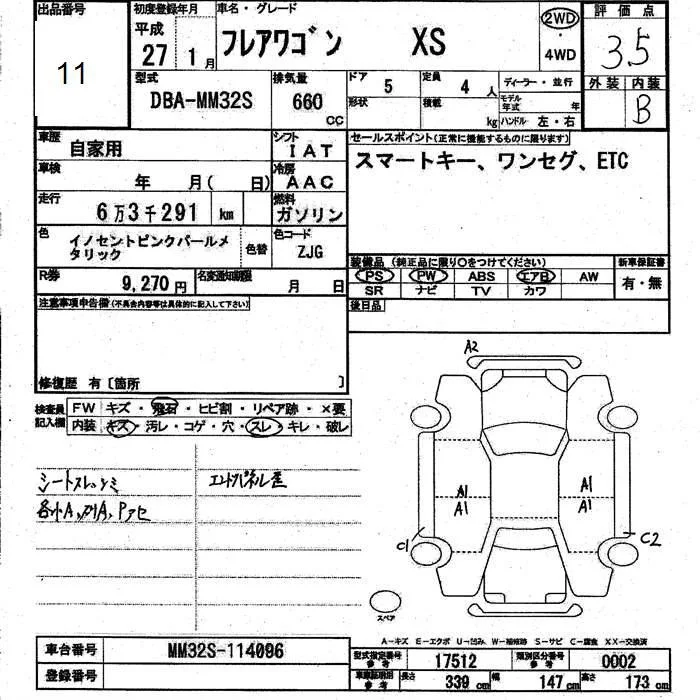 出品番号
11
初度登録年月
平成
27 1 月
車名・グレード
フレアワゴン XS
2WD
・
4WD
評価点
3.5
外装 内装
B
型式
DBA-MM32S
排気量
660
CC
ドア
5
定員
4 人
形状
積載
kg
ディーラー・並行
モデル年式 年
ハンドル 左・右
車歴
自家用
シフト
IAT
車検
年 月( 日)
冷房
AAC
走行
6万3千291 km
燃料
ガソリン
色
イノセントピンクパールメ
タリック
色替
色コード
ZJG
R券
9,270円
名変通知期限
月 日
セールスポイント(正常に機能するものに限ります)
スマートキー、ワンセグ、ETC
装備品 (純正品に限り○をつけてください)
PS PW ABS エアB AW
SR ナビ TV カワ
新車保証書
有・無
後日品
注意事項申告欄(不具合内容等は具体的に記入して下さい)
修復歴 有〔箇所 〕
検査員
記入欄
FW キズ・飛石・ヒビ割・リペア跡・×要
内装 キズ・汚レ・コゲ・穴・スレ・キレ・破レ
シートスレ
エンドパネル
各小A
A2
A1
A1
A1
A1
C1
C2
スペア
A−キズ E−エクボ U−凹み W−補修跡 S−サビ C−腐食 XX−交換済
車台番号
MM32S-114096
登録番号
型式指定番号
参考
17512
類別区分番号
参考
0002
車庫証明用
参考
長さ 339 cm 幅 147 cm 高さ 173 cm